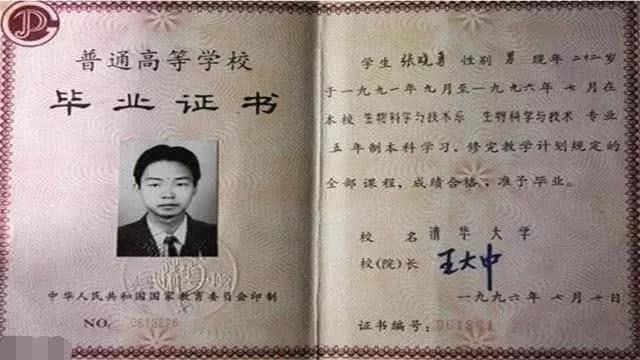 普通高等学校
毕业证书
中华人民共和国国家教育委员会印制
NO: 0618226
学生 张晓勇 性别 男 现年 二十二岁
于一九九一年九月至一九九六年 七月在
本校 生物科学与技术系 生物科学与技术 专业
五年制本科学习，修完教学计划规定的
全部课程，成绩合格，准予毕业。
校 名 清华大学
校(院)长 王大中
一九九六年 七月 十日
证书编号: 961881